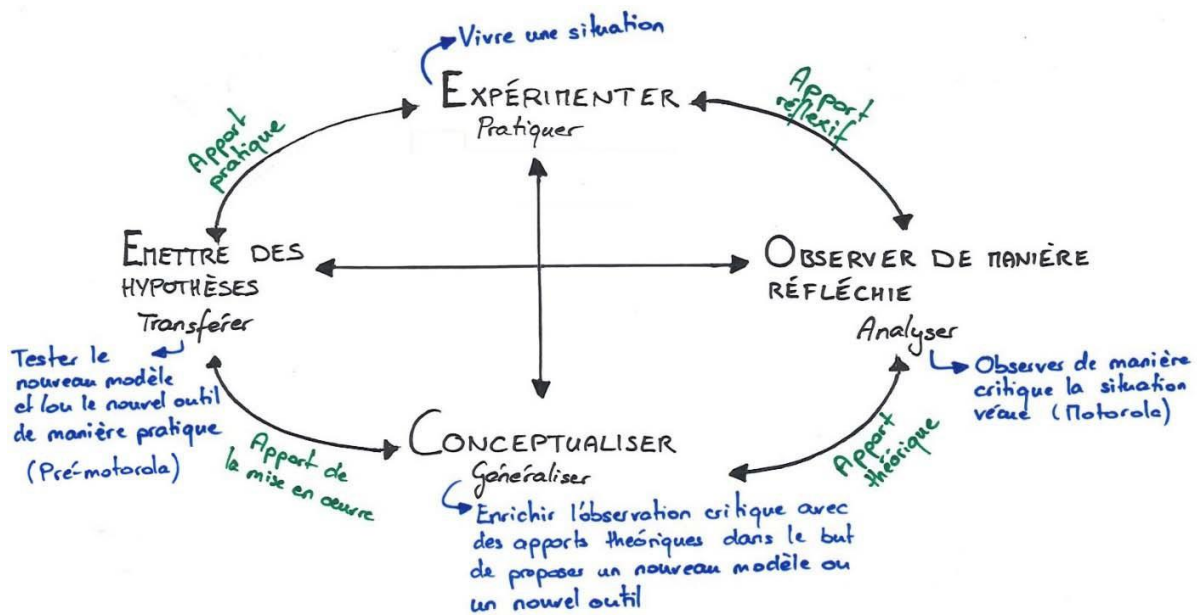 Vivre une situation
EXPÉRIMENTER
Pratiquer
Apport
pratique
Apport
réflexif
EMETTRE DES
HYPOTHÈSES
Transférer
OBSERVER DE MANIÈRE
RÉFLÉCHIE
Analyser
Tester le
nouveau modèle
et/ou le nouvel outil
de manière pratique
(Pré-motorola)
Observer de manière
critique la situation
vécue (Motorola)
Apport de
la mise en œuvre
CONCEPTUALISER
Généraliser
Apport
théorique
Enrichir l'observation critique avec
des apports théoriques dans le but
de proposer un nouveau modèle ou
un nouvel outil